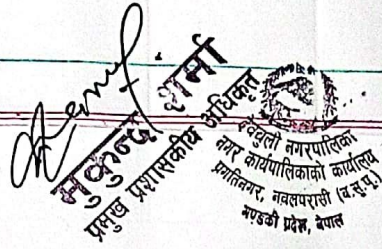 मुकुन्द शर्मा
प्रमुख प्रशासकीय अधिकृत
देवचुली नगरपालिका
नगर कार्यपालिकाको कार्यालय
प्रगतिनगर, नवलपरासी (ब.सु.पू.)
गण्डकी प्रदेश, नेपाल